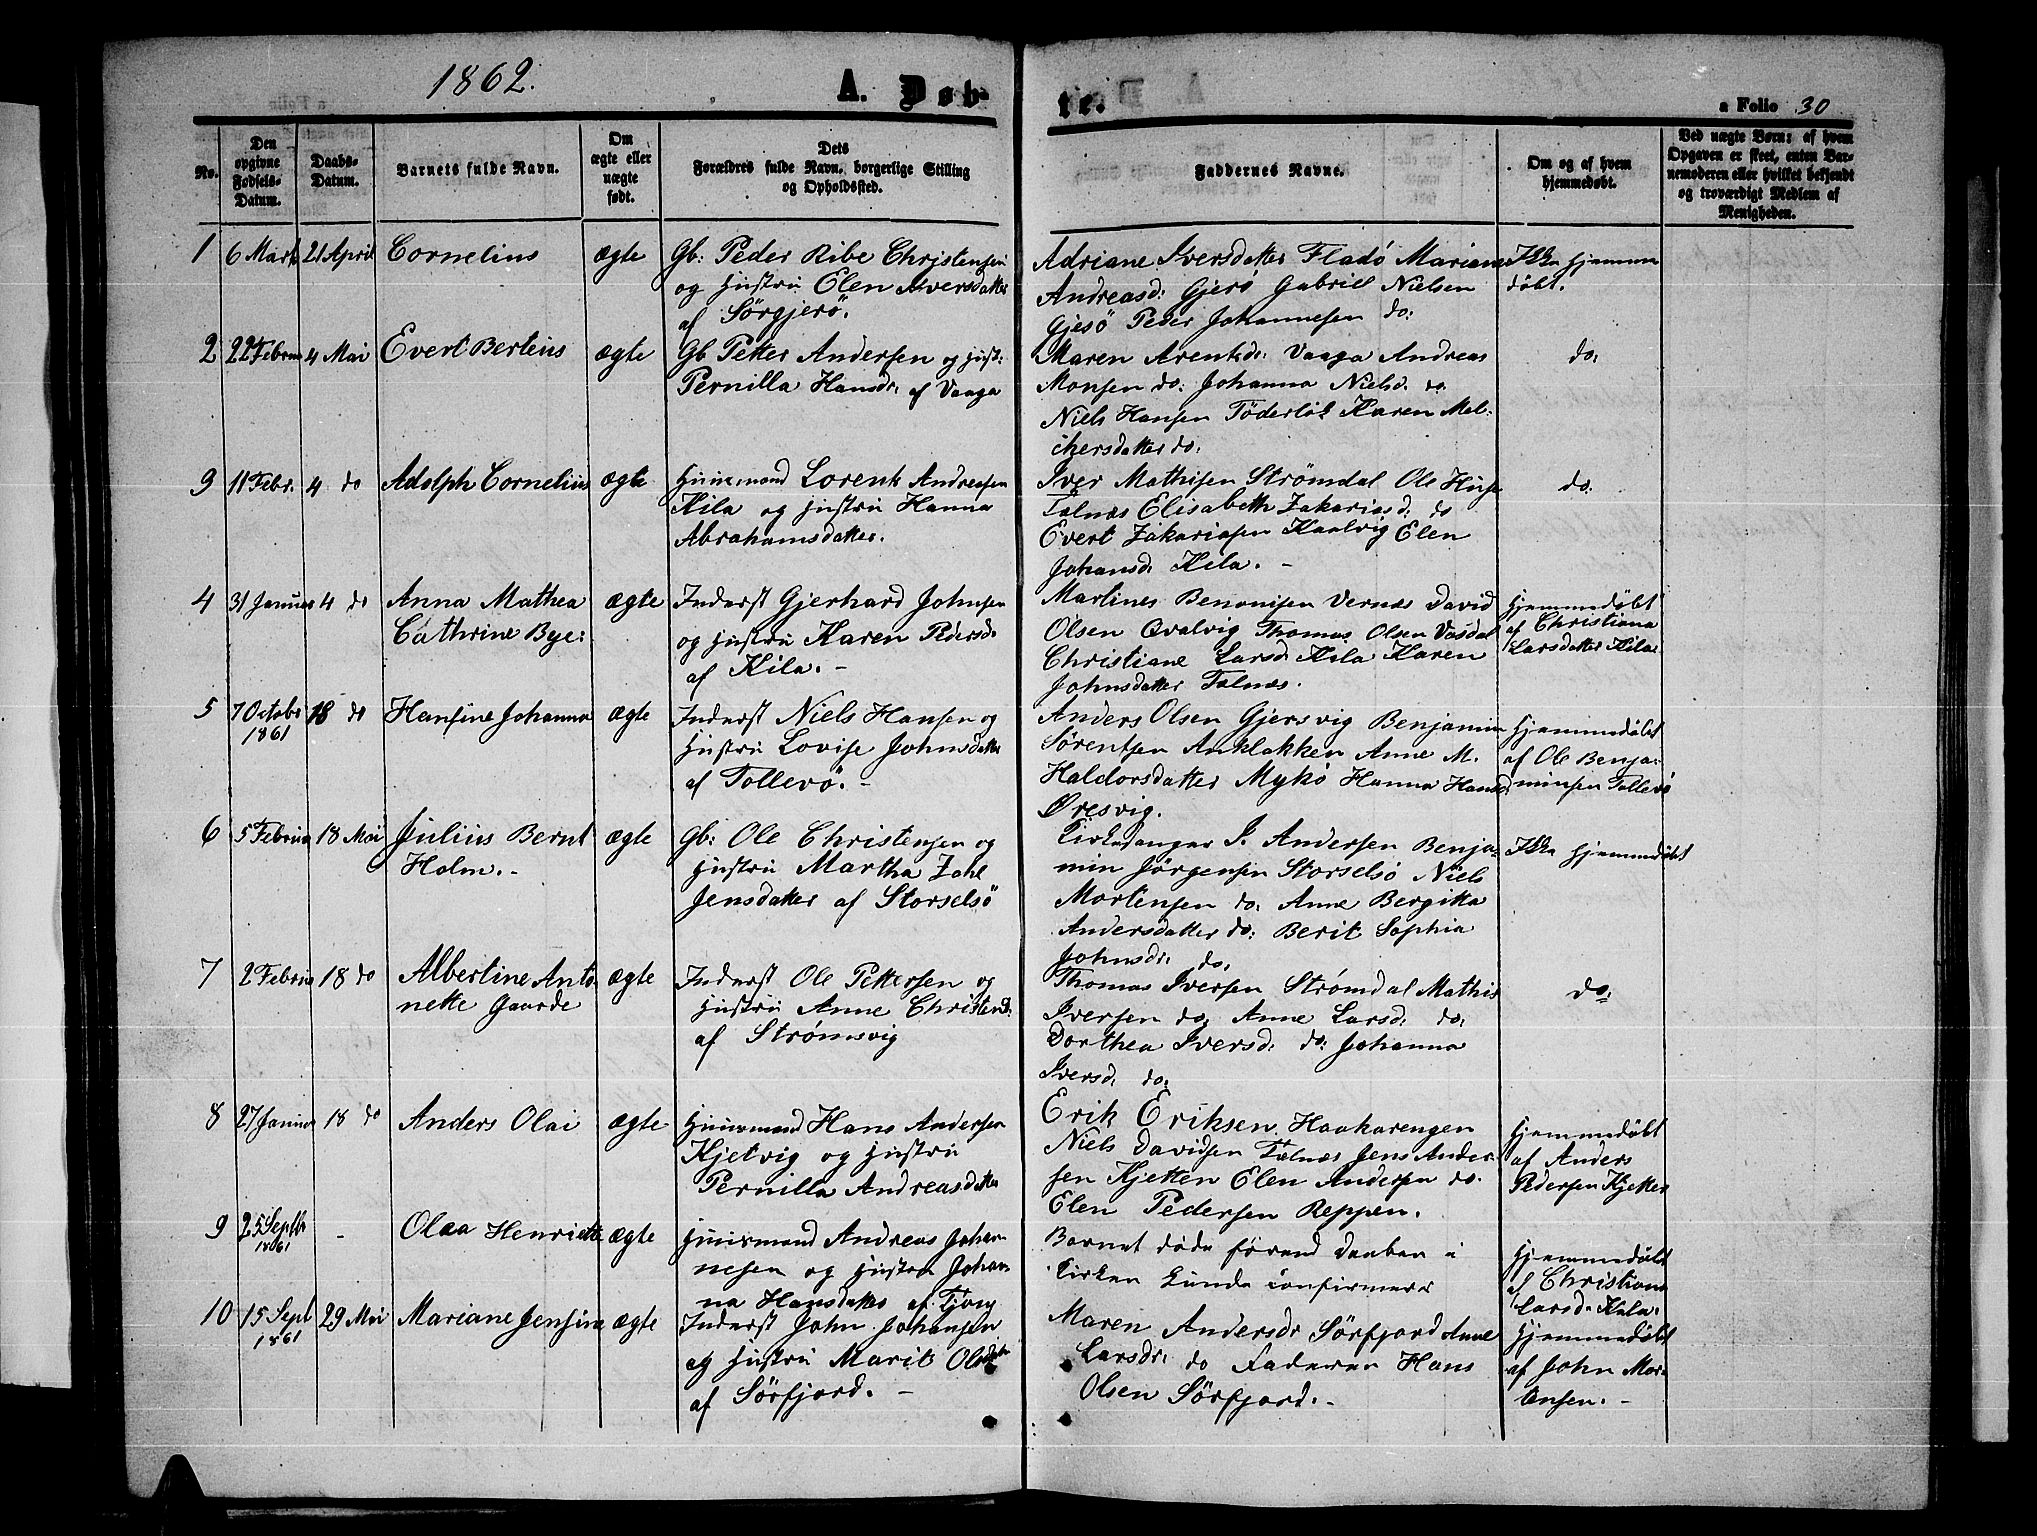 1862.
A. Døb-
te.
a Folio 30
No.
Den opgivne Fødsels-Datum.
Daabs-Datum.
Barnets fulde Navn.
Om ægte eller uægte født.
Dets Forældres fulde Navn, borgerlige Stilling og Opholdssted.
Faddernes Navne.
Om og af hvem hjemmedøbt.
Ved uægte Børn: af hvem Opgaven er skeet, enten Barnemoderen eller hvilket bekjendt og troværdigt Medlem af Menigheden.
1 6 Marts 21 April Cornelius ægte
Gb: Peder Ribe Christensen
og Hustru Elen Iversdatter
af Sörgjerö.
Adriane Iversdatter Fladö Mariane
Andreasd: Gjerö Gabriel Nielsen
Gjesö Peder Johannesen do:
Ikke hjemme
döbt.
2 22 Februar 4 Mai Evert Bertius ægte
Gb Petter Andersen og Hust:
Pernilla Hansdr. af Vaaga
Maren Arentsd: Vaaga Andreas
Monsen do: Johanna Nielsd. do
Niels Hansen Töderlöt Karen Mel:
chersdatter do:
do:
3 11 Febr. 4 do Adolph Cornelius ægte
Huusmand Lorents Andreasen
Kila og Hustru Hanna
Abrahamsdatter.
Iver Mathisen Strömdal Ole
Tælnæs Elisabeth Zakariasd: do
Evert Zakariasen Kaalvig Elen
Johansd: Kila. -
do:
4 31 Januar 4 do Anna Mathea
Cathrine Bye: ægte
Inderst Gjerhard Johnsen
og Hustru Karen Pedersd.
af Kila. -
Martines Benonisen Vernæs David
Olsen Qvalvig Thomas Olsen Vasdal
Christiane Larsd: Kila Karen
Johnsdatter Tælnæs.
Hjemmedöbt
af Christiana
Larsdatter Kila
5 7 Octobr 1861 18 do Hansine Johanna ægte
Inderst Niels Hansen og
Hustru Lovise Johnsdatter
af Tollevö. -
Anders Olsen Gjersvig Benjamin
Sörentsen Anklakken Anne M.
Haldorsdatter Mykö Hanna Hansd.
Øresvig.
Hjemmedöbt
af Ole Benja-
minsen Tollevö
6 5 Februar 18 Mai Julius Bernt
Holm. - ægte
Gb: Ole Christensen og
Hustru Martha Zahl
Jensdatter af Storselsö
Kirkesanger I. Andersen Benja-
min Jörgensen Storselsö Niels
Mortensen do: Anne Bergitta
Andersdatter do: Berit Sophia
Johnsdr. do.
Ikke hjemmedöbt
7 2 Februar 18 do Albertine Anto-
nette Gaarde ægte
Inderst Ole Pettersen og
Hustru Anne Christensd:
af Strømsvig
Thomas Iversen Strømdal Mathis
Iversen do; Anne Larsd: do:
Dorthea Iversd: do: Johanna
Iversd. do:
do:
8 27 Januar 18 do Anders Olai ægte
Huusmand Hans Andersen
Kjelvig og Hustru
Pernilla Andreasdatter
Erik Eriksen Haakarengen
Niels Davidsen Tælnæs Jens Ander-
sen Kjetten Elen Andersen do.
Elen Pedersen Reppen.
Hjemmedöbt
af Anders
Pedersen Kjetten
9 25 Septbr 1861 - Olea Henriette ægte
Huusmand Andreas Johan-
nesen og Hustru Johan-
na Hansdatter af Tjong
Barnet döde förend Daaben i
Kirken kunde confirmeres
Hjemmedöbt
af Christiana
Larsd. Kila.
10 15 Sept 1861 29 Mai Mariane Jensine ægte
Inderst John Johansen
og Hustru Marit Olsdatter
af Sörfjord. -
Maren Andersdr Sörfjord Anne
Larsdr. do Faderen Hans
Olsen Sörfjord. -
Hjemmedöbt
af John Mor-
tensen. -